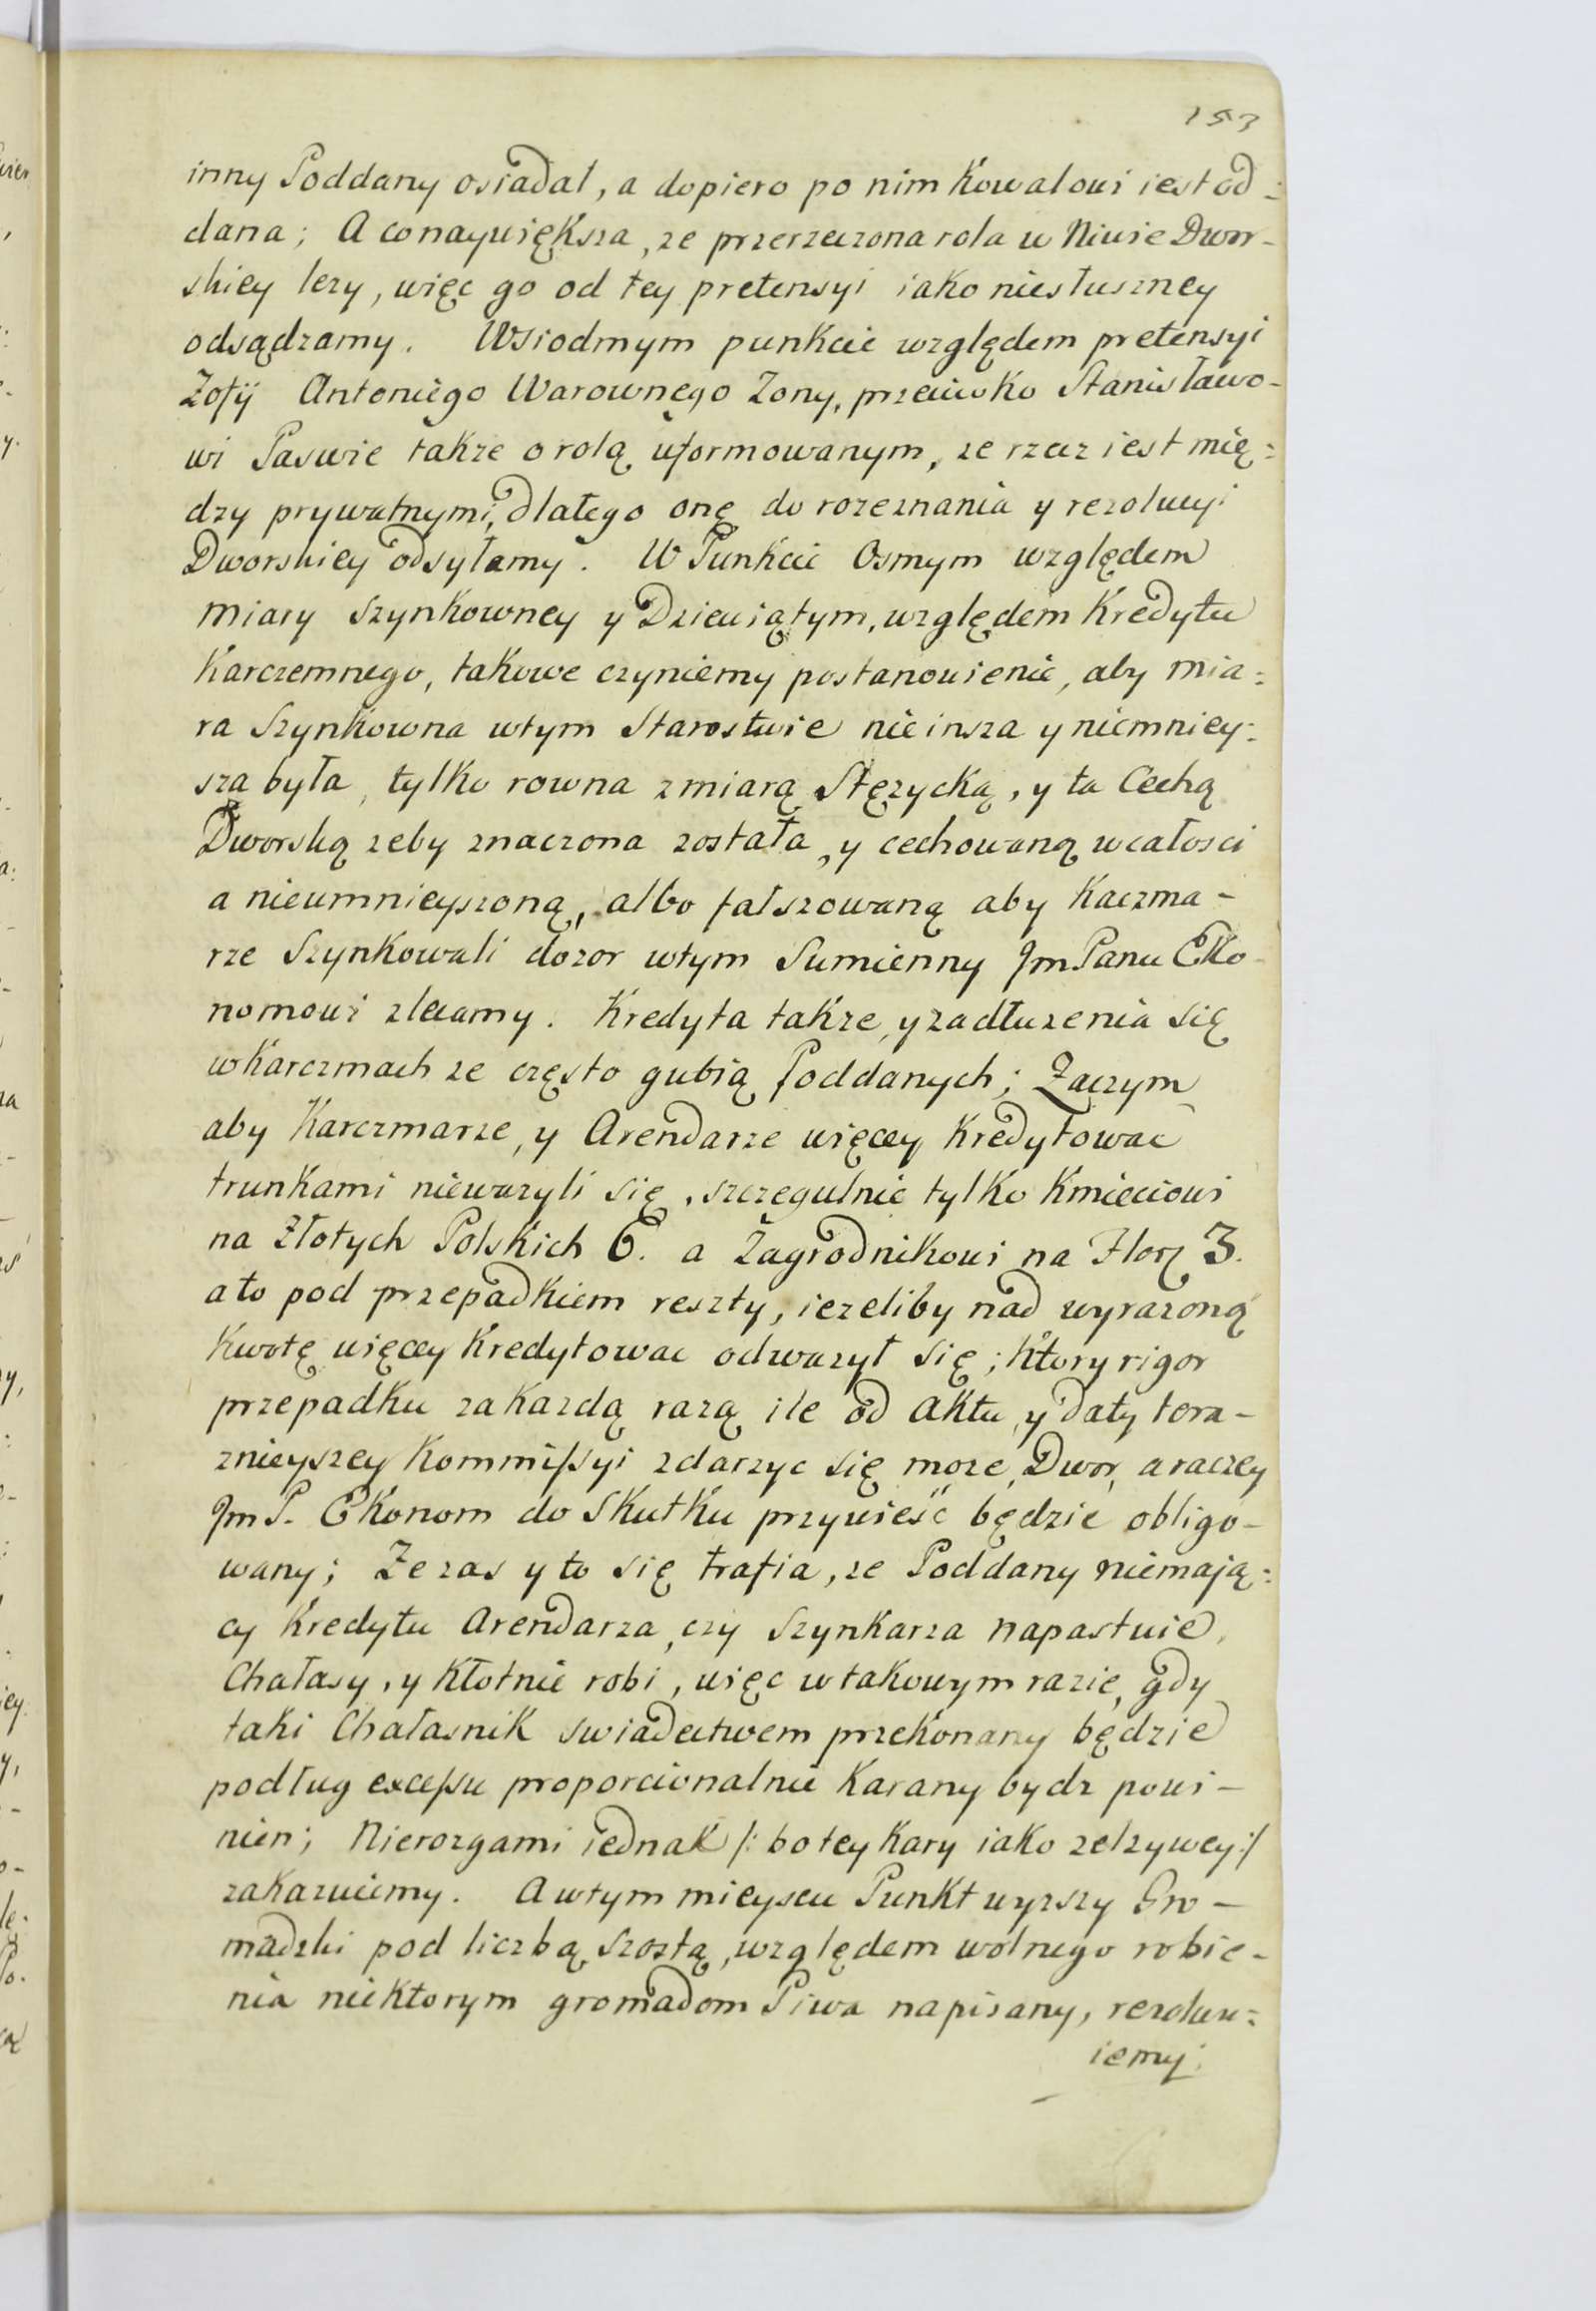 153
inny Poddany osiadał, a dopiero po nim Kowalowi iest od=
dana; A conaywięKsza, ze przerzeczona rola w Niwie Dwor-
skiey lezy, więc go od tey pretensyi iako niesłuszney
odsądzamy. Wsiodmym punkcie względem pretensyi
Zofij Antoniego Warownego Zony, przeciwko Stanisławo-
wi Paswie takze o rolą uformowanym, ze rzecz iest mię=
dzy prywatnymi, dlatego onę do rozeznania y rezolucyi
Dworskiey odsyłamy. W Punkcie Osmym względem
miary szynkowney y Dziewiątym, względem Kredytu
Karczemnego, takowe czyniemy postanowienie, aby mia=
ra Szynkowna wtym Starostwie nie insza y niemniey=
sza była, tylko rowna zmiarą Stęzycką, y ta Cechą
Dworską zeby znaczona została, y cechowaną wcałosci
a nieumnieyszoną, albo fałszowaną aby Kaczma-
rze Szynkowali dozor wtym Sumienny Jm Panu Eko-
nomowi zlecamy. Kredyta takze, y zadłuzenia się
wKarczmach ze często gubią Poddanych; Zaczym
aby Karczmarze, y Arendarze więcey Kredytowac
trunkami niewazyli się, szczegulnie tylko Kmieciowi
na Złotych Polskich 6. a Zagrodnikowi na Flor 3.
a to pod przepadkiem reszty, iezeliby nad wyrazoną
Kwotę więcey Kredytowac odwazył się; Ktory rigor
przepadku zakazdą razą ile od Aktu, y daty tera-
znieyszey Kommissyi zdarzyc się moze, Dwor, a raczey
Jm P. Ekonom do Skutku przywieść będzie obligo-
wany; Ze zas y to się trafia, ze Poddany niemają=
cy Kredytu Arendarza, czy Szynkarza napastuie,
Chałasy, y Kłotnie robi, więc w takowym razie, gdy
taki Chałasnik swiadectwem przekonany będzie
podług excessu proporcionalnie Karany bydz powi-
nien; Nierozgami iednak /: bo tey Kary iako zelzywey :/
zakazuiemy. A wtym mieyscu Punkt wyzszy Gro-
madzki pod liczbą szostą, względem wolnego robie-
nia niektorym gromadom Piwa napisany, rezolwu=
iemy.